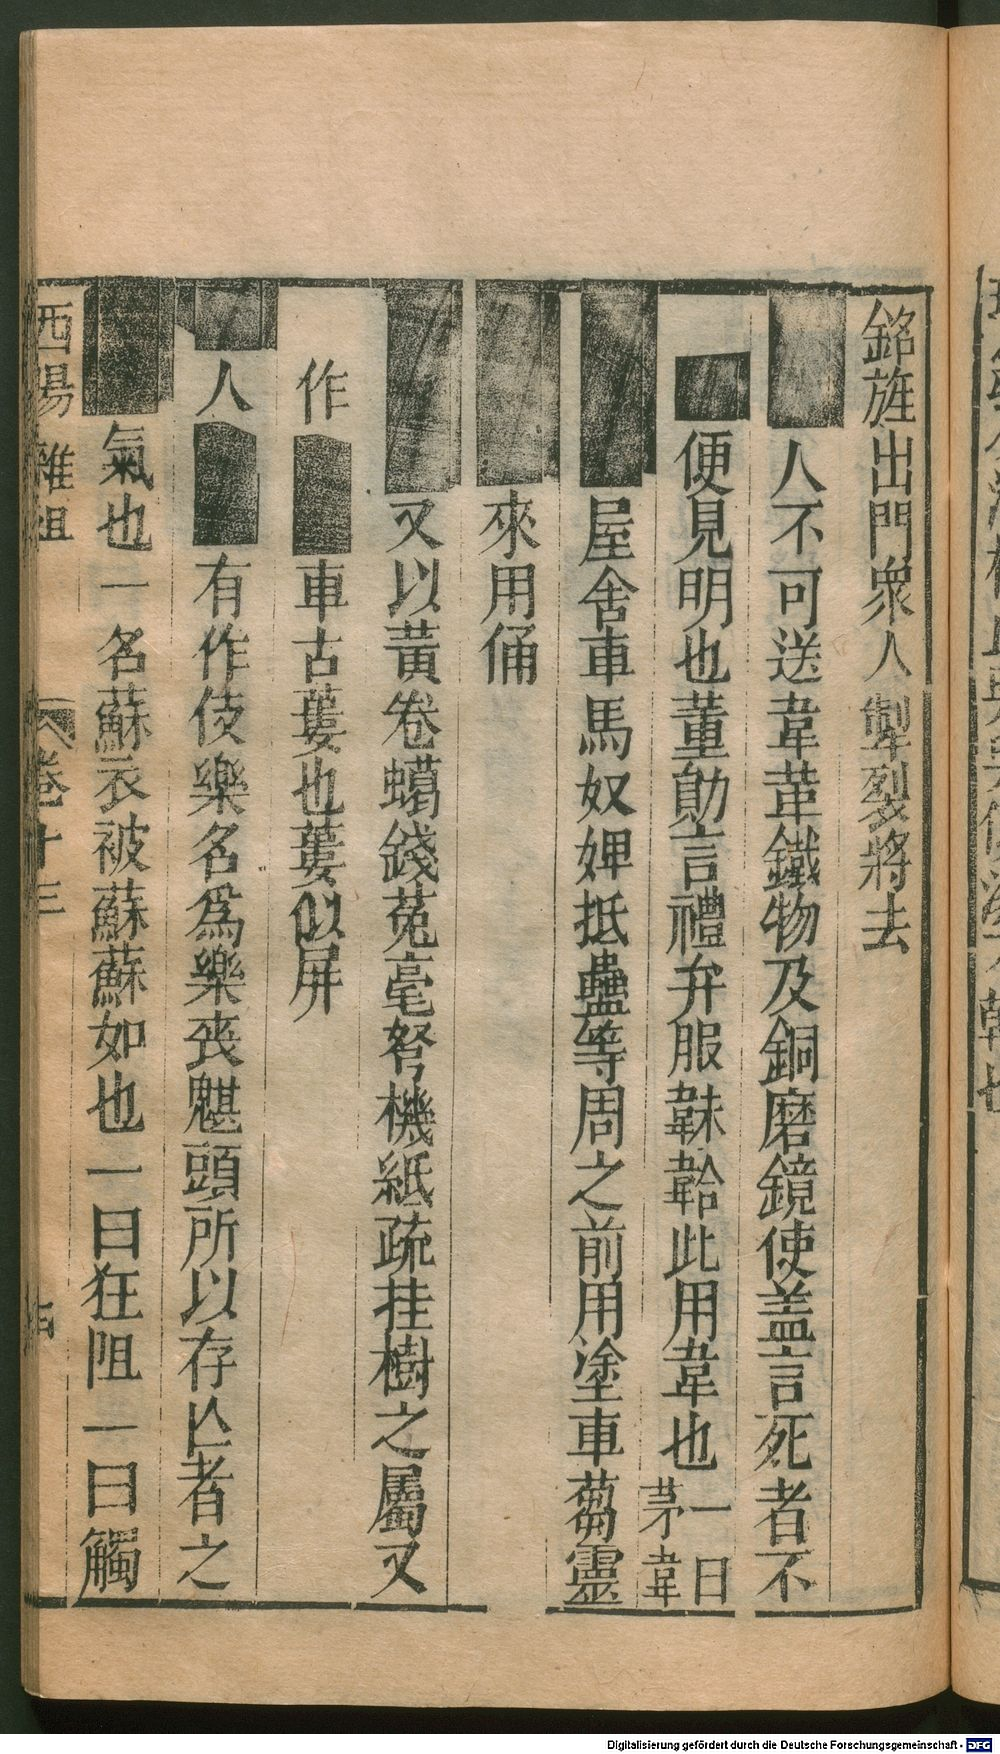 銘旌出門衆人掣裂將去
人不可送韋革鐵物及銅磨鏡使盖言死者不
便見明也董勛言禮弁服韎韐此用韋也一曰茅韋
屋舍車馬奴婢抵蠱等周之前用塗車蒭靈
來用俑
又以黃卷蠟錢菟毫弩機紙疏挂樹之屬又
作 車古蔞也蔞似屏
人 有作伎樂名爲樂喪魌頭所以存亾者之
氣也一名蘇衣被蘇蘇如也一曰狂阻一曰觸
酉陽雜俎 卷十三 七
Digitalisierung gefördert durch die Deutsche Forschungsgemeinschaft - DFG